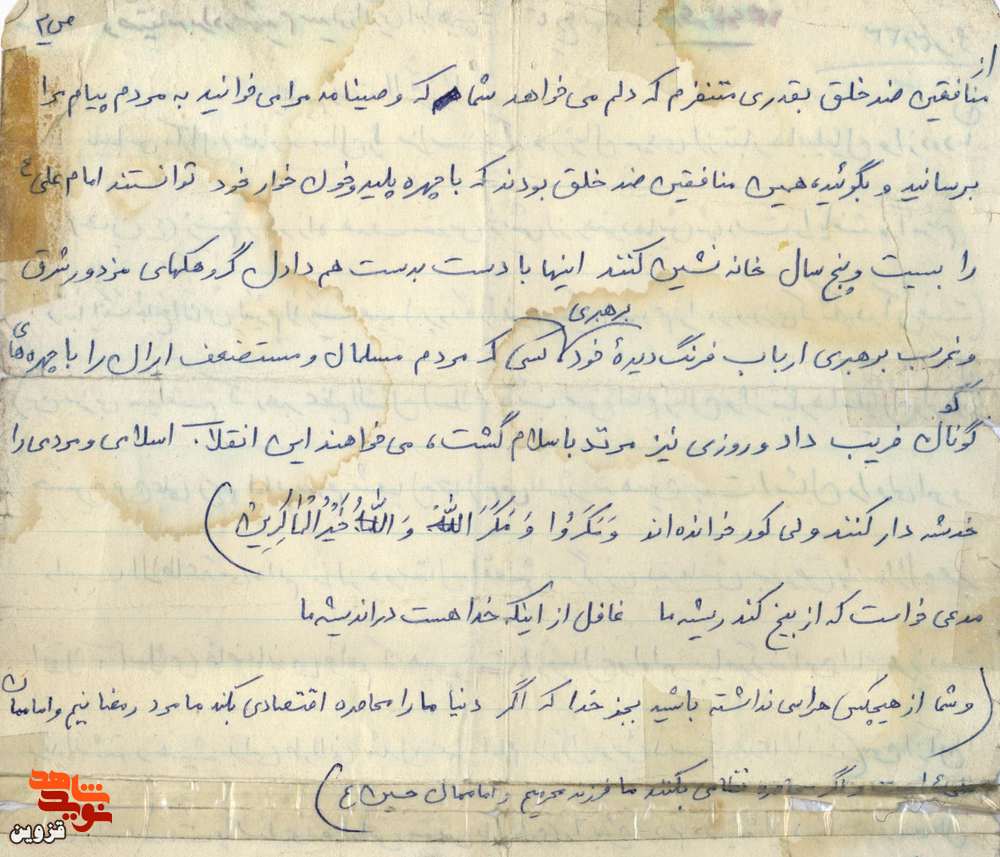 ص ۲
از
منافقین ضد خلق بقدری متنفرم که دلم می خواهد شما که وصیتنامه مرا می خوانید به مردم پیام مرا
برسانید و بگوئید، همین منافقین ضد خلق بودند که با چهره پلید و خون خوار خود توانستند امام علی ع
را بیست و پنج سال خانه نشین کنند اینها با دست بدست هم دادن گروهکهای مزدور شرق
و غرب برهبری ارباب فرنگ دیدهٔ خود برهبری کسی که مردم مسلمان و مستضعف ایران را با چهره های
گو
گوناگون فریب داد و روزی نیز مرتد باسلام گشت، می خواهند این انقلاب اسلامی و مردمی را
خدشه دار کنند ولی کور خوانده اند وَ مَکَرُوا وَ مَکَرَ اللهُ وَ اللهُ خَیْرُ الْمَاکِرِینَ)
مدعی خواست که از بیخ کند ریشه ما غافل از اینکه خدا هست در اندیشه ما
(و شما از هیچکس هراسی نداشته باشید بجز خدا که اگر دنیا ما را محاصره اقتصادی بکند ما مرد رمضانیم و اماممان
و اگر نظامی بکنند ما فرزند محرمیم و اماممان حسین ع)
شاهد
نوید
قزوین